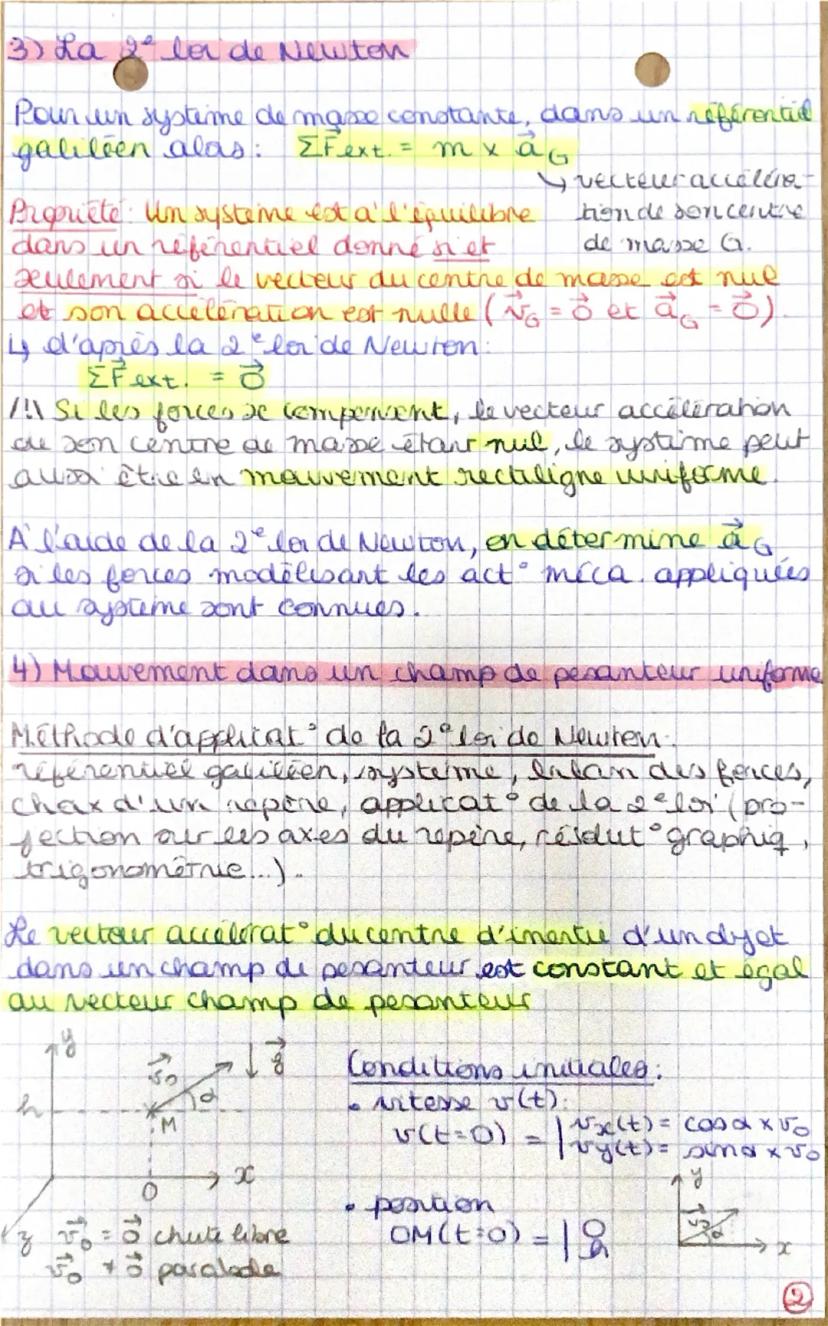 3) La 2e loi de Newton
Pour un système de masse constante, dans un référentiel
galiléen alors : ΣF⃗ext. = m x a⃗G
↳ vecteur accéléra-
tion de son centre
de masse G.
Propriété : Un système est à l'équilibre
dans un référentiel donné si et
seulement si le vecteur du centre de masse est nul
et son accélération est nulle (v⃗G = 0⃗ et a⃗G = 0⃗).
↳ d'après la 2e loi de Newton :
ΣF⃗ext. = 0⃗
/!\ Si les forces se compensent, le vecteur accélération
de son centre de masse étant nul, le système peut
aussi être en mouvement rectiligne uniforme.
A l'aide de la 2e loi de Newton, on détermine a⃗G
si les forces modélisant les act° méca. appliquées
au système sont connues.
4) Mouvement dans un champ de pesanteur uniforme
Méthode d'applicat° de la 2e loi de Newton :
référentiel galiléen, système, bilan des forces,
choix d'un repère, applicat° de la 2e loi (pro-
jection sur les axes du repère, résolut° graphiq,
trigonométrie...).
Le vecteur accélérat° du centre d'inertie d'un objet
dans un champ de pesanteur est constant et égal
au vecteur champ de pesanteur
y
v⃗0
g⃗
h
α
M
x
O
z
v⃗0 = 0⃗ chute libre
v⃗0 ≠ 0⃗ parabole
Conditions initiales :
• vitesse v(t) :
v(t=0) = | vx(t) = cosα x v0
vy(t) = sinα x v0
• position
OM(t=0) = | 0
h
y
v⃗0
α
x
2